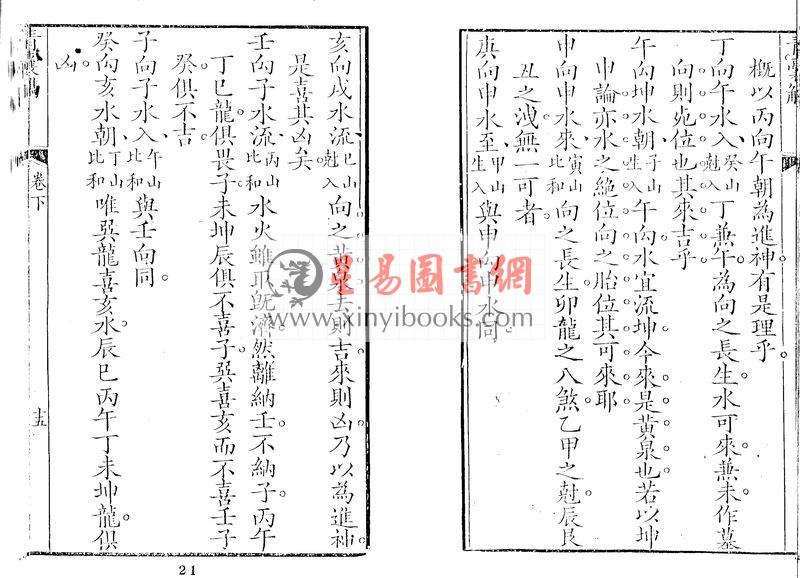 概以丙向午朝為進神有是理乎。
丁向午水入、癸山尅入丁兼午為向之長生水可來。兼未作墓
向則死位也其來吉乎
午向坤水朝、子山生入午向水宜流坤今來是黃泉也若以坤
申論亦水之絶位向之胎位其可來耶
申向申水來、寅山比和向之長生卯龍之八煞乙甲之尅辰艮
丑之洩無一可者。
庚向申水至、甲山生入與申向申水同。
亥向戌水流、巳山尅入向之黃泉去則吉來則凶乃以為進神
是喜其凶矣
壬向子水流、丙山比和水火雖取既濟然離納壬不納子。丙午
丁巳龍俱畏子未坤辰俱不喜子巽喜亥而不喜壬子
癸俱不吉
子向子水入、午山比和與壬向同
癸向亥水朝、丁山比和唯巽龍喜亥水。辰巳丙午丁未坤龍俱
凶。
卷下
十五
21
易圖書網
www.xinyibooks.com